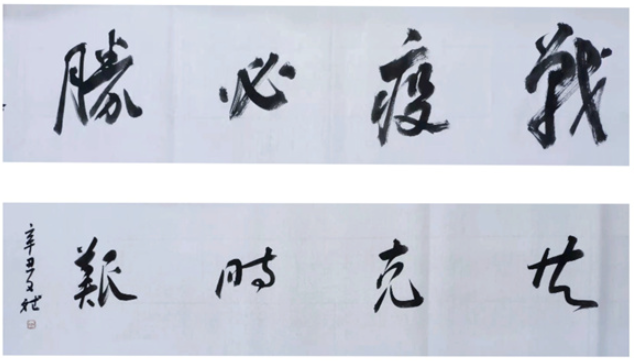 戰疫必勝
共克時艱
辛丑文斌